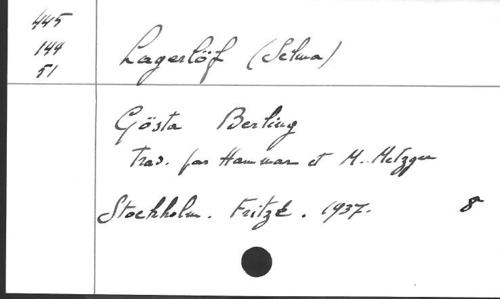 445
144
51
Lagerlöf (Selma)
Gösta Berling
Trad. par Hammar et M. Metzger
Stockholm. Fritze. 1937. 8